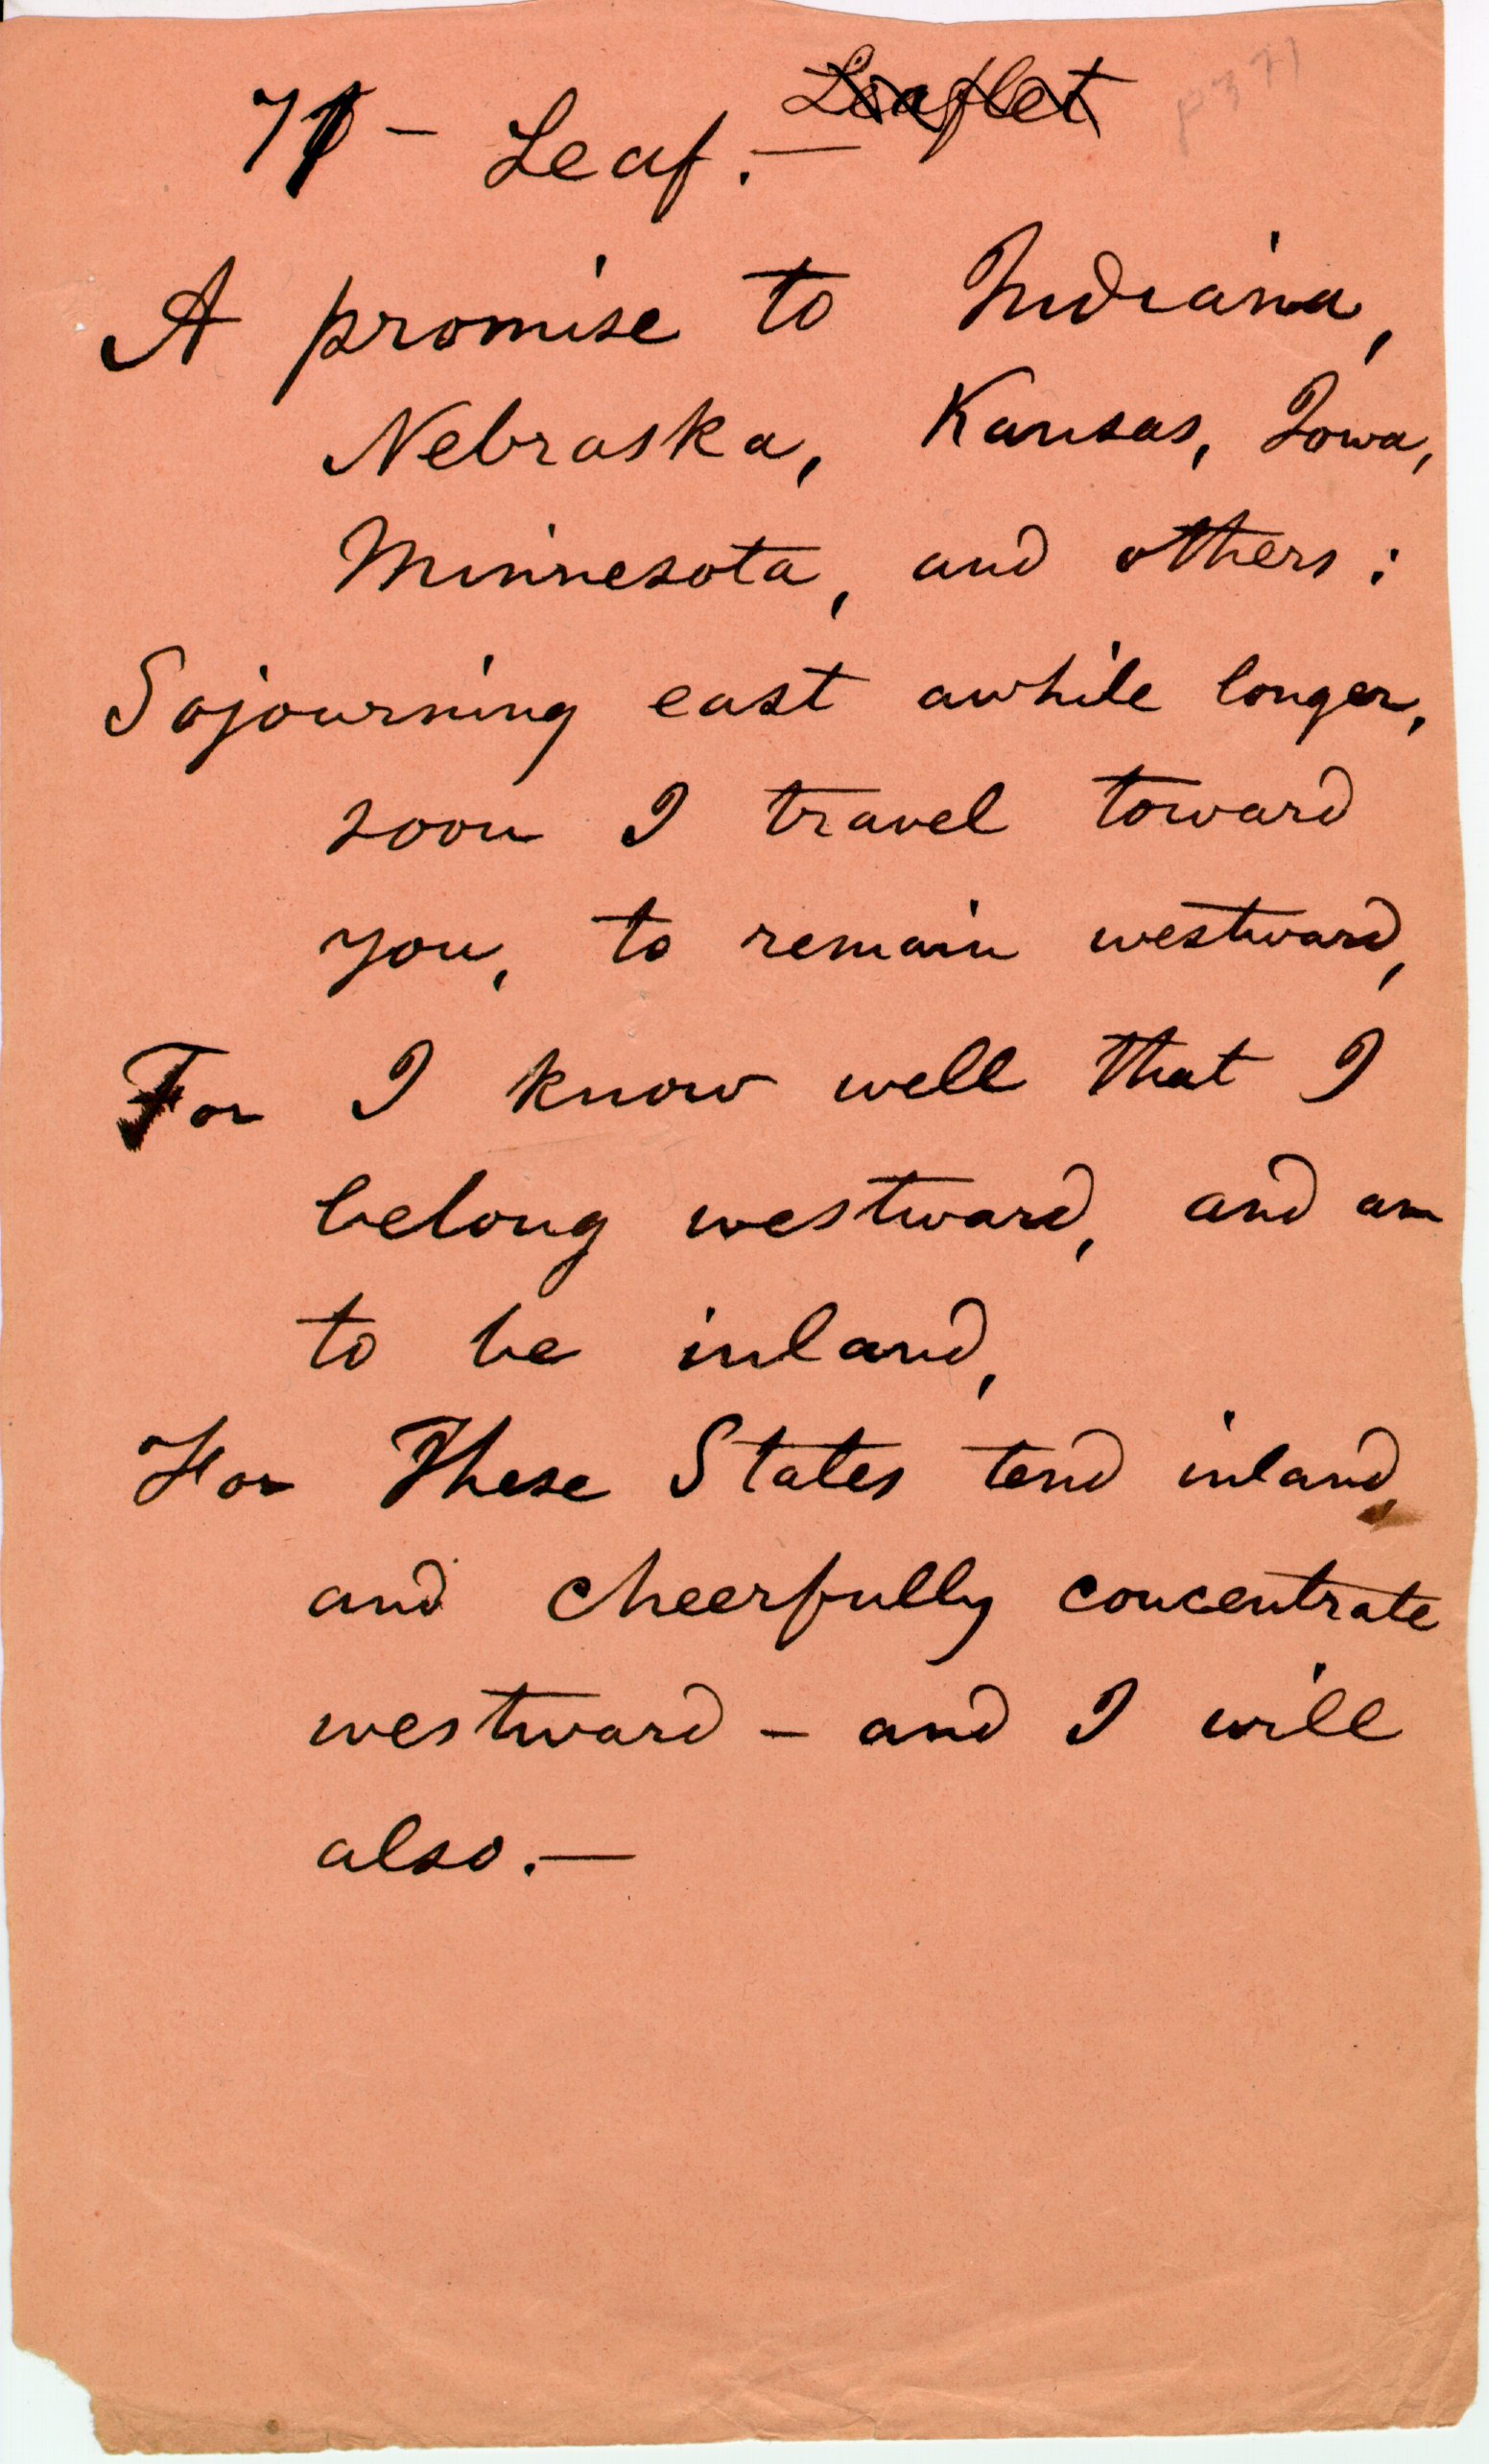 71 - Leaf. — Leaflet
p 371
A promise to Indiana,
Nebraska, Kansas, Iowa,
Minnesota, and others:
Sojourning east awhile longer,
soon I travel toward
you, to remain westward,
For I know well that I
belong westward, and am
to be inland,
For These States tend inland,
and cheerfully concentrate
westward – and I will
also. —